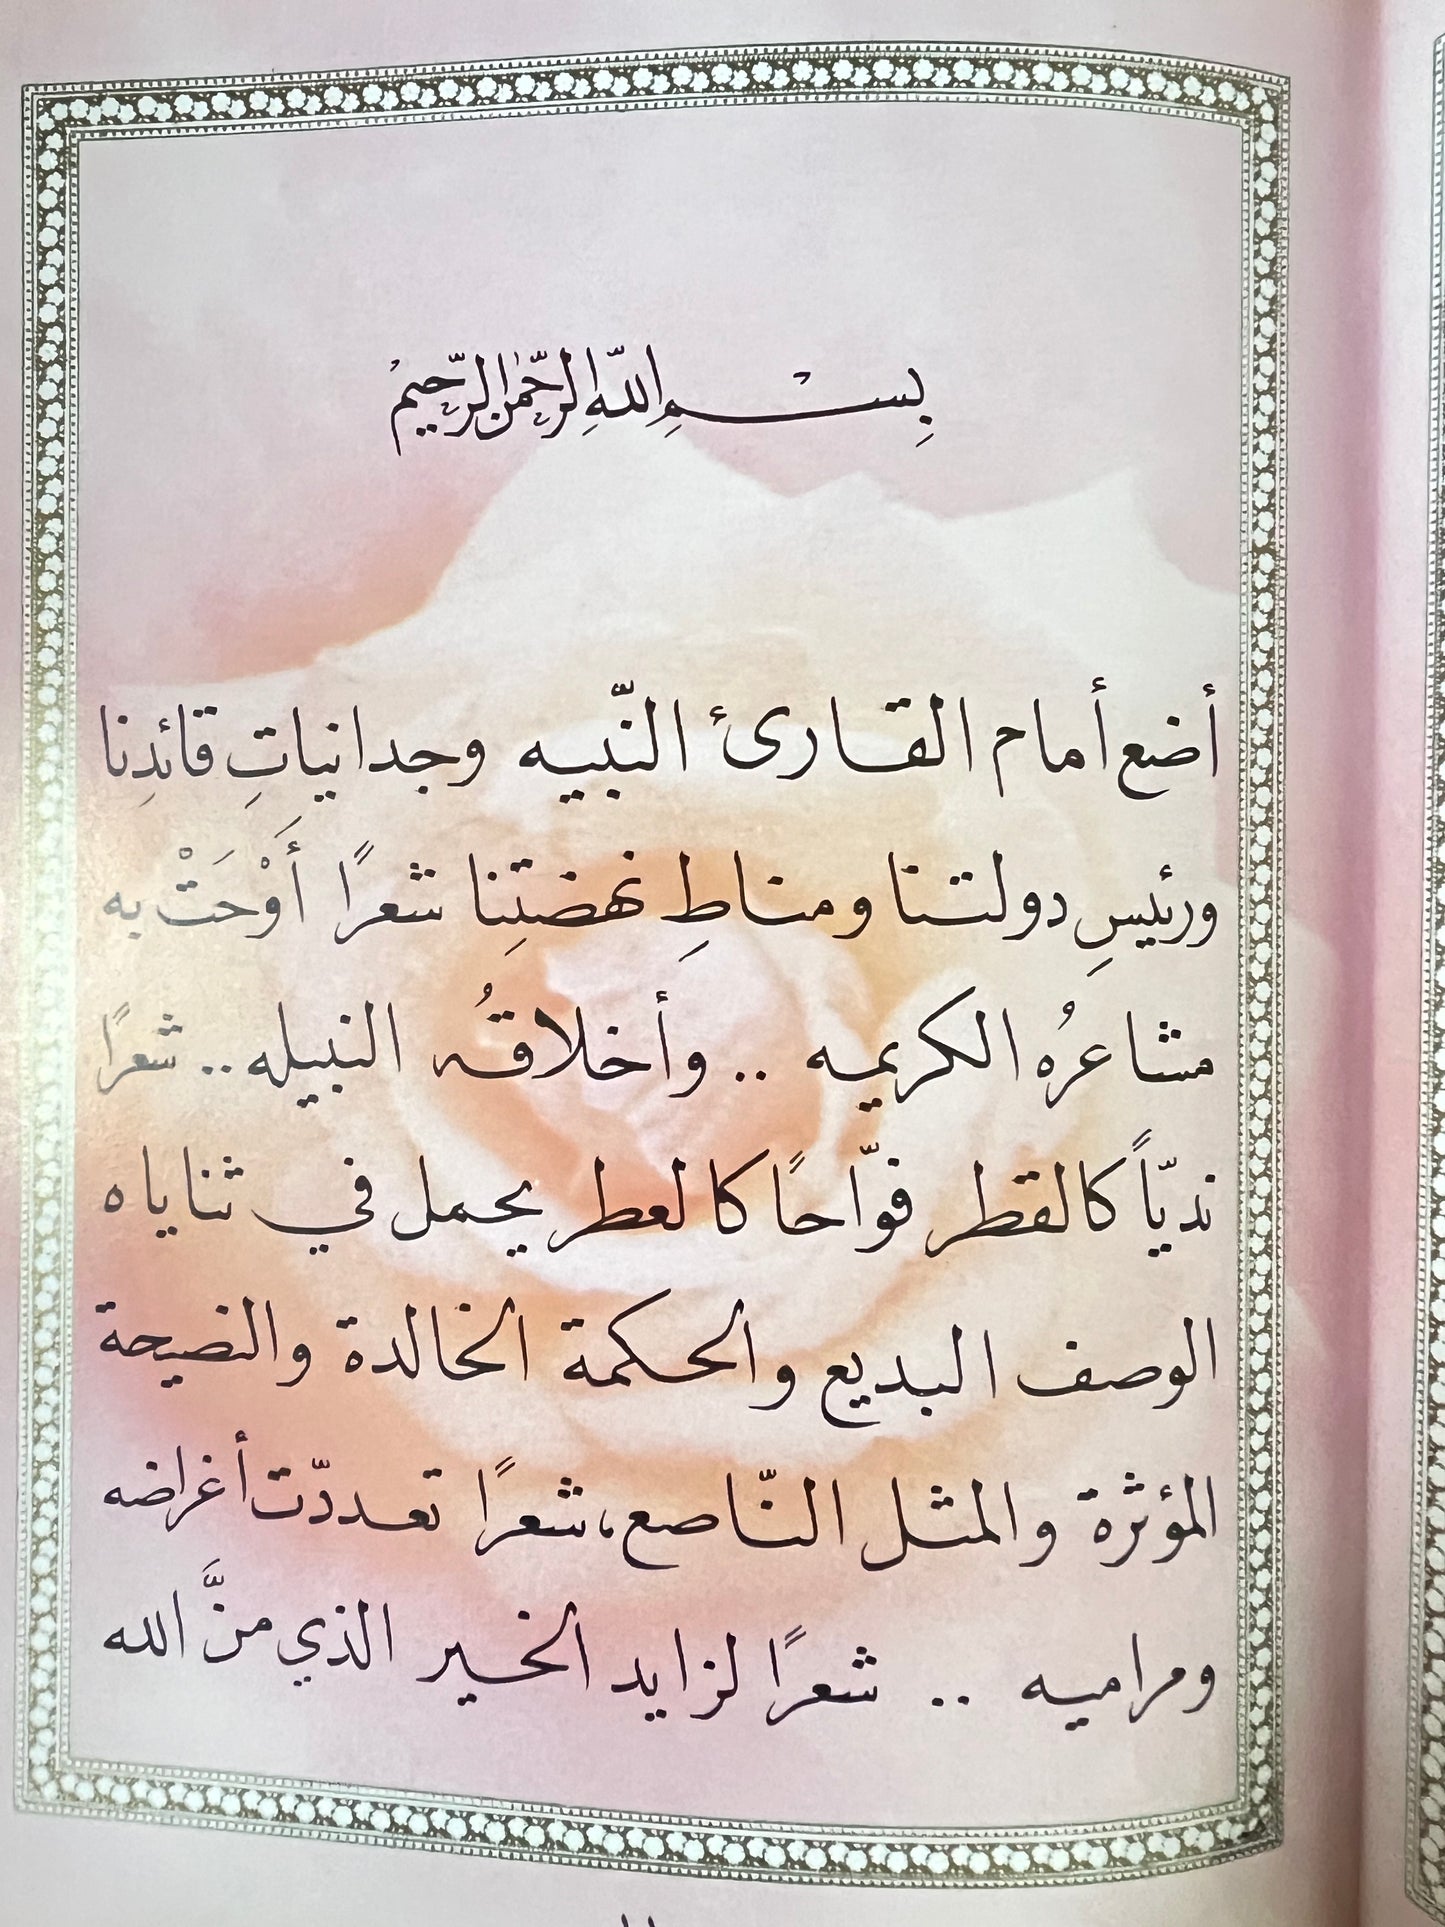 بِسْمِ اللّهِ الرَّحْمٰنِ الرَّحِيمْ
أضع أمام القارئ النّبيه وجدانياتِ قائدِنا
ورئيسِ دولتنا ومناطِ نهضتِنا شعرًا أَوْحَتْ به
مشاعرُه الكريمه .. وأخلاقهُ النبيله .. شعرًا
نديّاً كالقطر فوّاحًا كالعطر يحمل في ثناياه
الوصف البديع والحكمة الخالدة والنصيحة
المؤثرة والمثل النّاصع، شعرًا تعددّت أغراضه
ومراميه .. شعرًا لزايد الخير الذي منَّ الله